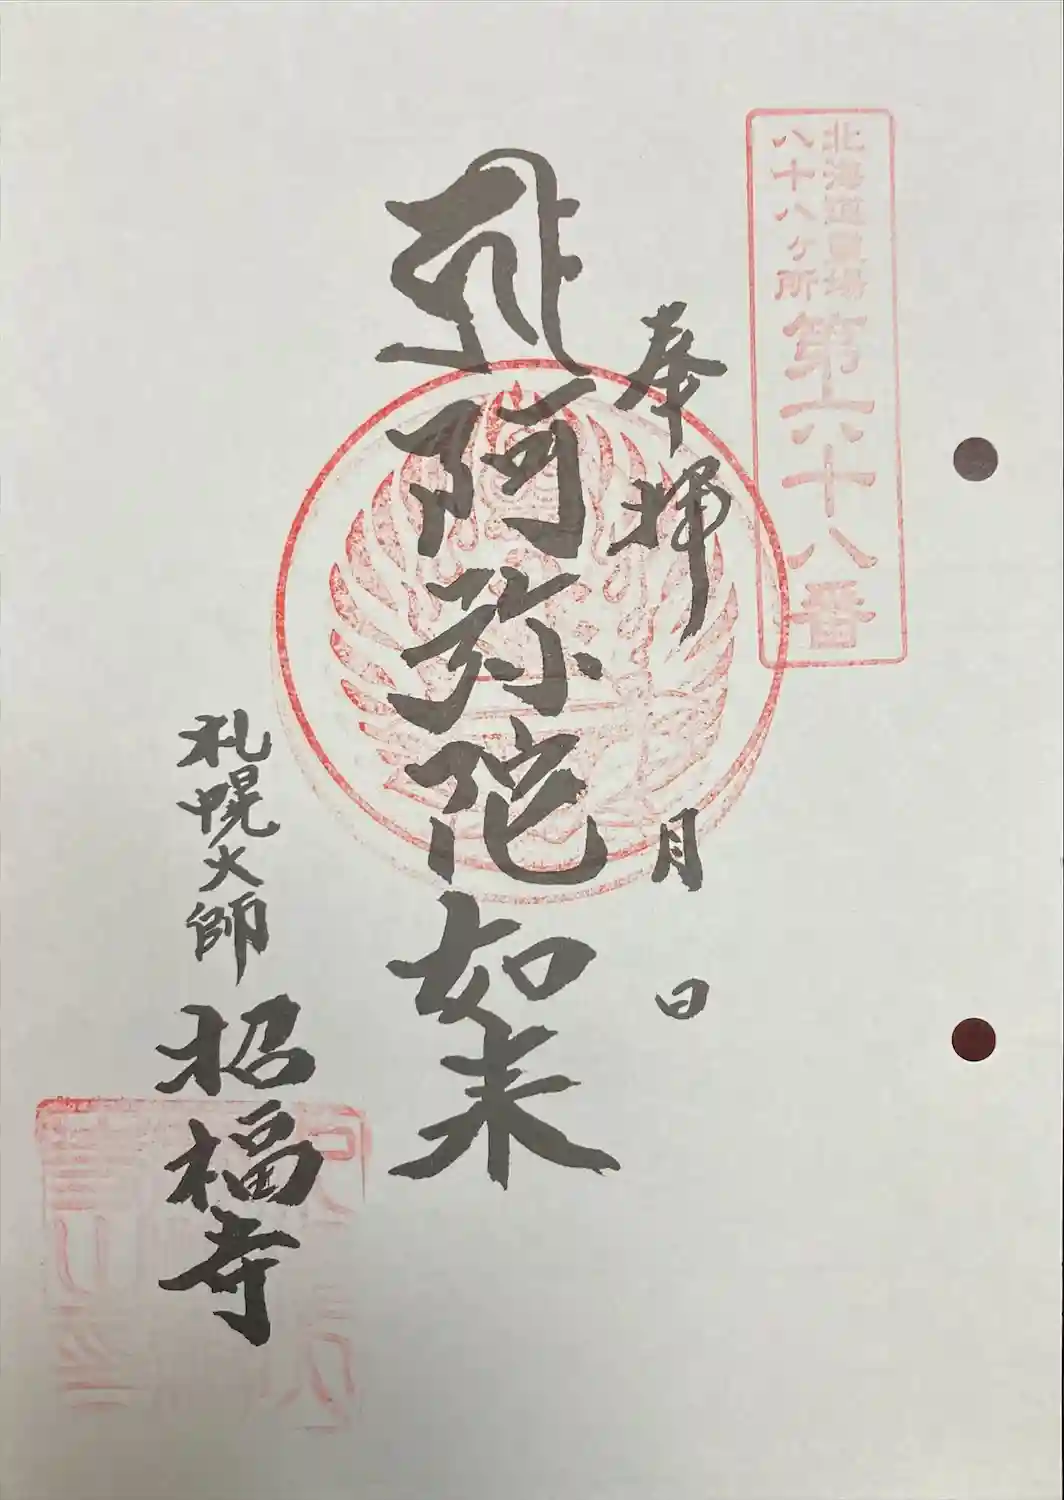 北海道霊場
八十八ヶ所
第六十八番
奉拝
月 日
阿弥陀如来
札幌大師
招福寺